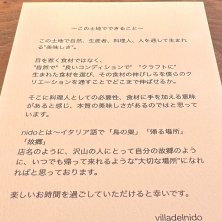 〜この土地でできること〜
この土地で自然、生産者、料理人、人を通して生まれる"美味しさ"。
目を惹く食材ではなく、
"自然で" "良いコンディションで" "クラフトに"
生まれた食材を選び、その食材の伸びしろを僕らのクリエーションを通すことでどこまで伸ばせるか。
そこに料理人としての必要性、食材に手を加える意味があると感じ、本質の美味しさがあるのではと思っています。
nidoとは〜イタリア語で「鳥の巣」「帰る場所」
「故郷」
店名のように、沢山の人にとって自分の故郷のように、いつでも帰って来れるような"大切な場所"になれればと思っております。
楽しいお時間を過ごしていただけると幸いです。
villadelnido